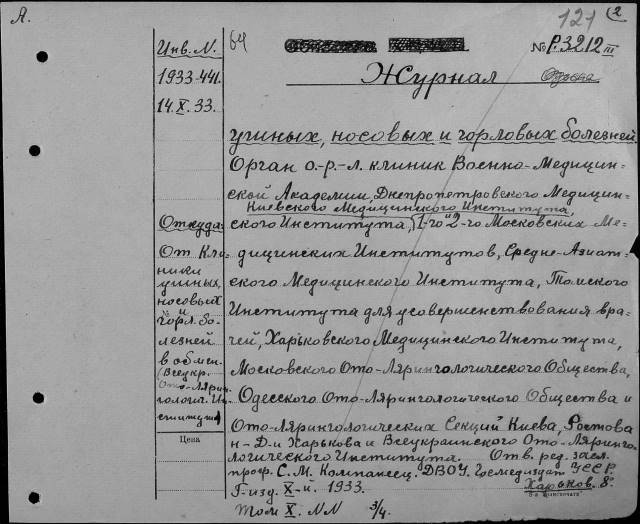 А.
121 2
64
№ Р.3212 III
Журнал
Инв. N.
1933-441.
14.X.33.
ушных, носовых и горловых болезней.
Орган о.-р.-л. клиник Военно-Медицин-
ской Академии, Днепропетровского Медицин-
Киевского Медицинского Института,
ского Института, 1-го и 2-го Московских Ме-
дицинских Институтов, Средне-Азиат-
ского Медицинского Института, Томского
Института для усовершенствования вра-
чей, Харьковского Медицинского Института,
Московского Ото-Лярингологического Общества,
Одесского Ото-Лярингологического Общества и
Ото-Лярингологических Секций Киева, Ростова
н-Д. и Харькова и Всеукраинского Ото-Ляринго-
логического Института. Отв. ред. засл.
проф. С. М. Компанеец. ДВОУ. Госмедиздат УССР.
Г. изд. X-й. 1933. Харьков. 8°.
Том X. NN 3/4.
Откуда:
От Кли-
ники
ушных,
носовых
и
горл. бо-
лезней
в обмен.
(Всеукр.
Ото-Лярин-
гологич. Ин-
ститута)
Цена